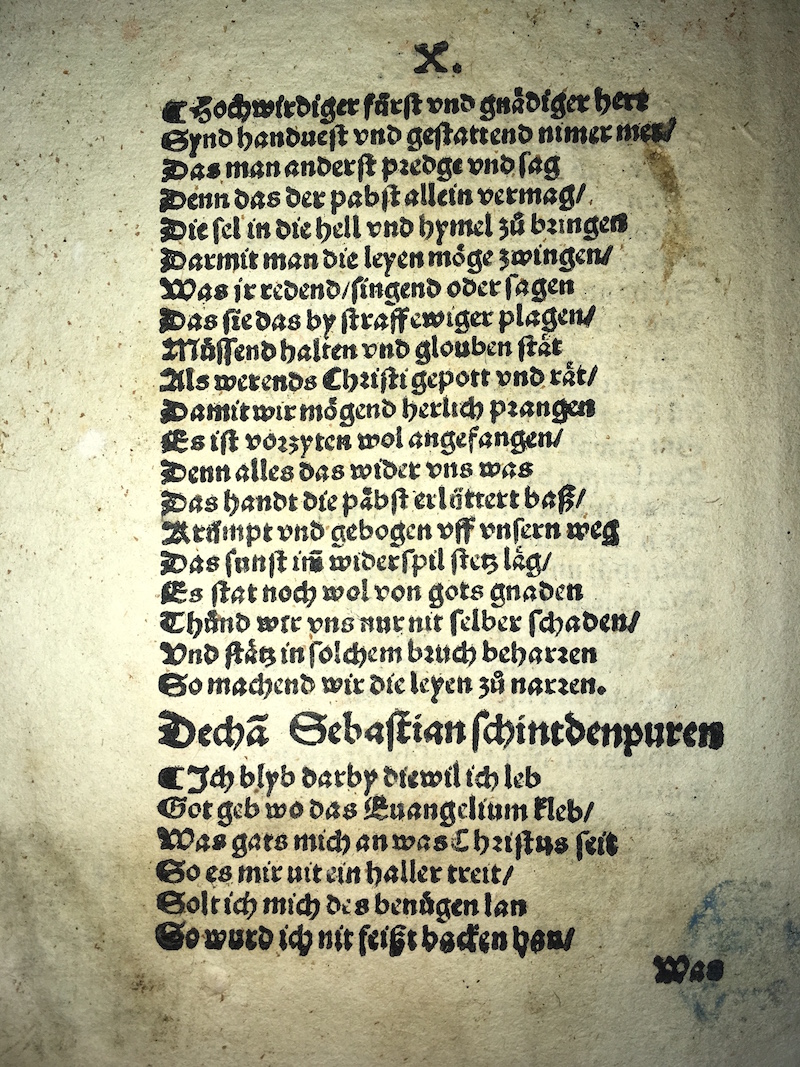 X.
¶ Hochwirdiger fürst vnd gnädiger herr
Synd handuest vnd gestattend nimer mer/
Das man anderst predge vnd sag
Denn das der pabst allein vermag/
Die sel in die hell vnd hymel zů bringen
Darmit man die leyen möge zwingen/
Was jr redend/singend oder sagen
Das sie das by straff ewiger plagen/
Můssend halten vnd glouben stät
Als werends Christi gepott vnd rät/
Damit wir mögend herlich prangen
Es ist vorzyten wol angefangen/
Denn alles das wider vns was
Das handt die päbst erlüttert baß/
Krümpt vnd gebogen vff vnsern weg
Das sunst im̃ widerspil stetz läg/
Es stat noch wol von gots gnaden
Thůnd wir vns nur nit selber schaden/
Vnd stätz in solchem bruch beharren
So machend wir die leyen zů narren.
Dechã Sebastian schintdenpuren
¶ Ich blyb darby diewil ich leb
Got geb wo das Euangelium kleb/
Was gats mich an was Christus seit
So es mir nit ein haller treit/
Solt ich mich des benůgen lan
So wurd ich nit feißt backen han/
Was